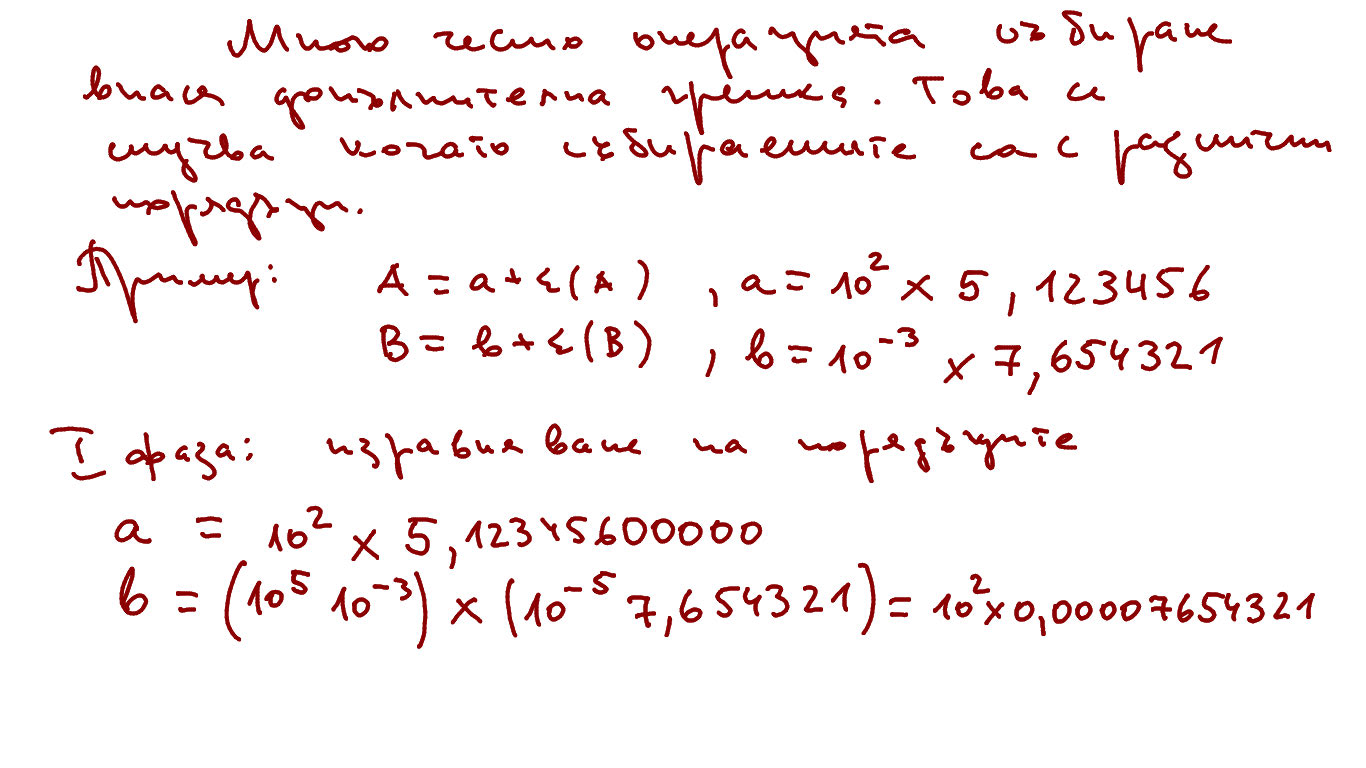 Много често операцията събиране
внася допълнителна грешка. Това се
случва когато събираемите са с различни
порядъци.
Пример: A = a + ε(A) , a = 10² × 5,123456
B = b + ε(B) , b = 10⁻³ × 7,654321
I фаза: изравняване на порядъците
a = 10² × 5,12345600000
b = (10⁵ 10⁻³) × (10⁻⁵ 7,654321) = 10² × 0,00007654321